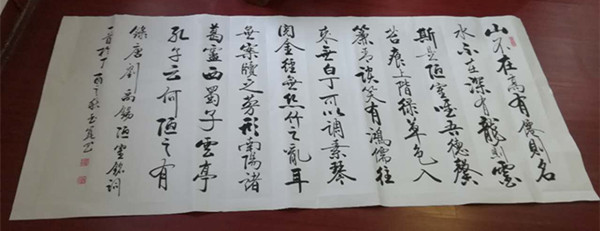 山不在高有僊則名
水不在深有龍則靈
斯是陋室唯吾德馨
苔痕上階綠草色入
簾青談笑有鴻儒往
來無白丁可以調素琴
閱金經無絲竹之亂耳
無案牘之勞形南陽諸
葛廬西蜀子雲亭
孔子云何陋之有
錄唐劉禹錫陋室銘詞
一首於丁酉之秋